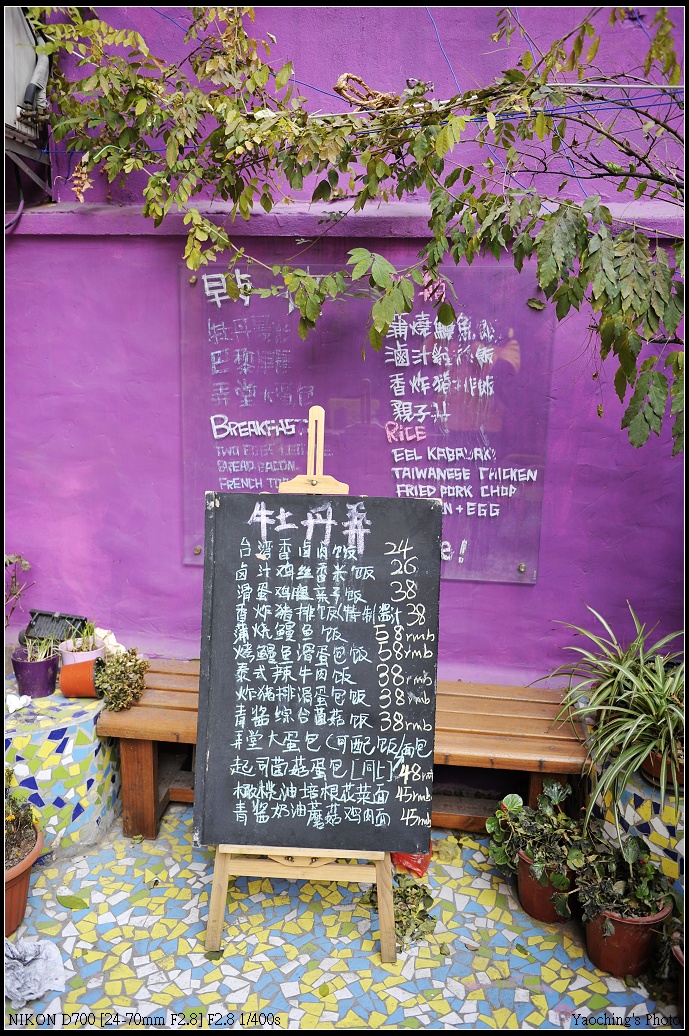 早
牡丹
巴黎
弄堂
BREAKFAST
BREAD BACON
FRENCH
蒲燒鰻魚
滷汁
香炸猪排饭
親子丼
RICE
EEL KABAYAKI
TAIWANESE CHICKEN
FRIED PORK CHOP
+ EGG
牡丹弄
台湾香卤肉饭 24
卤汁鸡丝香米饭 26
滑蛋鸡腿亲子饭 38
香炸猪排饭(特制酱汁 38
蒲烧鳗鱼饭 58rmb
烧鳗鱼滑蛋包饭 58rmb
泰式辣牛肉饭 38rmb
炸猪排滑蛋包饭 38rmb
青酱综合菌菇饭 38rmb
弄堂大蛋包(可配饭/面包
起司菌菇蛋包[同上] 48rm
橄榄油培根花菜面 45rmb
青酱奶油蘑菇鸡肉面 45rmb
NIKON D700 [24-70mm F2.8] F2.8 1/400s
Yaoching's Photo